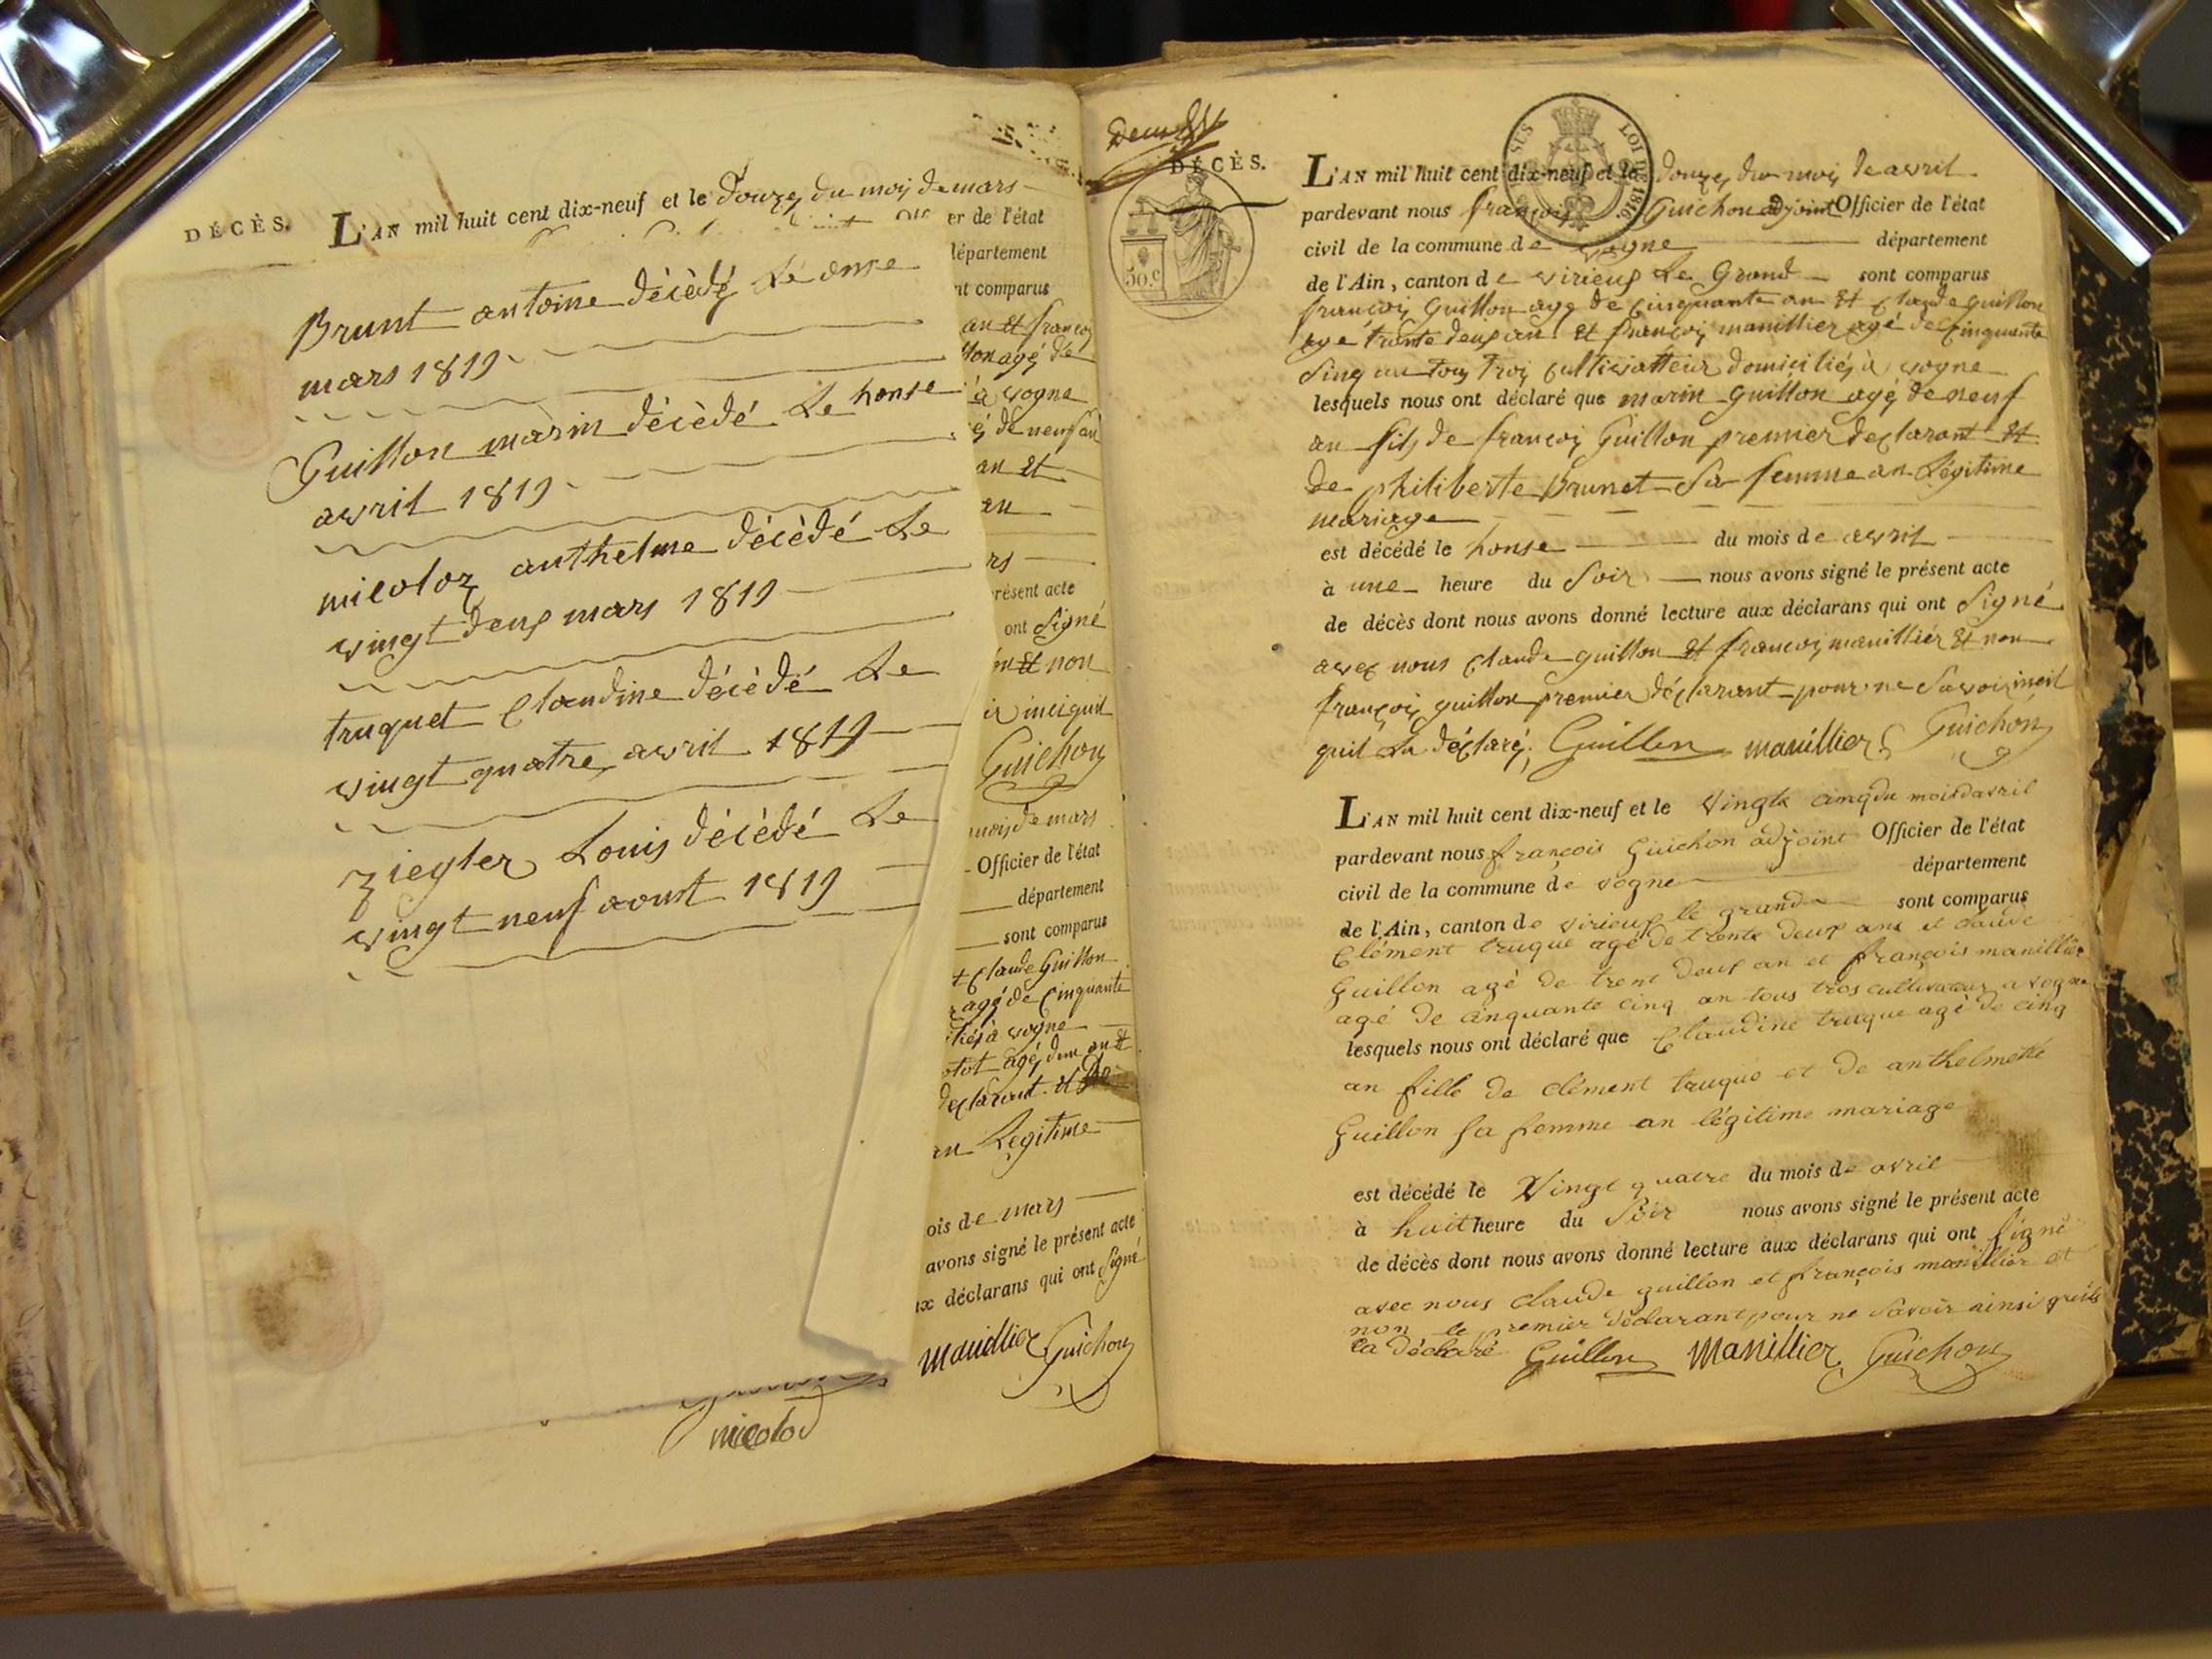 DÉCÈS.
L'AN mil huit cent dix-neuf et le douze du moij de mars
Brunt antoine décèdé Le onse
mars 1819
Guillon marin décèdé Le honse
avril 1819
micoloz anthelme décèdé Le
vingt deux mars 1819
truquet Claudine décèdé Le
vingt quatre avril 1819
ziegler Louis décèdé Le
vingt neuf aoust 1819
nicolod
er de l'état
département
nt comparus
an Et françoij
llon agé de
à vogne
é de neuf an
an Et
an
rs
résent acte
ont Signé
Et non
Guichon
mois de mars
Officier de l'état
département
sont comparus
t Claude Guillon
agé de Cinquante
liés à vogne
declarant. Et De
an Legitime
ois de mars
avons signé le présent acte
ux déclarans qui ont Signé
Manillier Guichon
DÉCÈS.
50.c
SES LOI DE 1816.
L'AN mil huit cent dix-neuf et le douze du moij de avril
pardevant nous françois Guichon adjoint Officier de l'état
civil de la commune de vogne département
de l'Ain, canton de virieux Le Grand sont comparus
françoij Guillon agé de Cinquante an Et Claude guillon
age trante deux an Et françoij manillier agé de Cinquante
Sinq an tous Troij Cultivatteur domiciliéj à vogne
lesquels nous ont déclaré que marin guillon agé de neuf
an fils de françoij Guillon premier declarant Et
De philiberte Brunet Sa femme an Légitime
mariage
est décédé le honse du mois de avril
à une heure du Soir nous avons signé le présent acte
de décès dont nous avons donné lecture aux déclarans qui ont Signé
avec nous Claude guillon Et françoij manilliér Et non
françoij guillon premier déclarant pour ne Savoir
quil La déclaré, Guillon manillier Guichon
L'AN mil huit cent dix-neuf et le Vingte cinq du mois davril
pardevant nous françois Guichon adjoint Officier de l'état
civil de la commune de vogne département
de l'Ain, canton de virieux le grand sont comparus
Clément truque agé de trente deux ans et claude
Guillon agé de trent deux an et françois manillier
agé de cinquante cinq an tous tros cultivateur a vogne
lesquels nous ont déclaré que Claudine truque agé de cinq
an fille de clément truque et de anthelmette
Guillon sa femme an légitime mariage
est décédé le Vingt quatre du mois de avril
à huit heure du Soir nous avons signé le présent acte
de décès dont nous avons donné lecture aux déclarans qui ont Signé
avec nous claude guillon et françois manillier et
non le premier déclarant pour ne Savoir ainsi quils
la déclaré Guillon Manillier Guichon